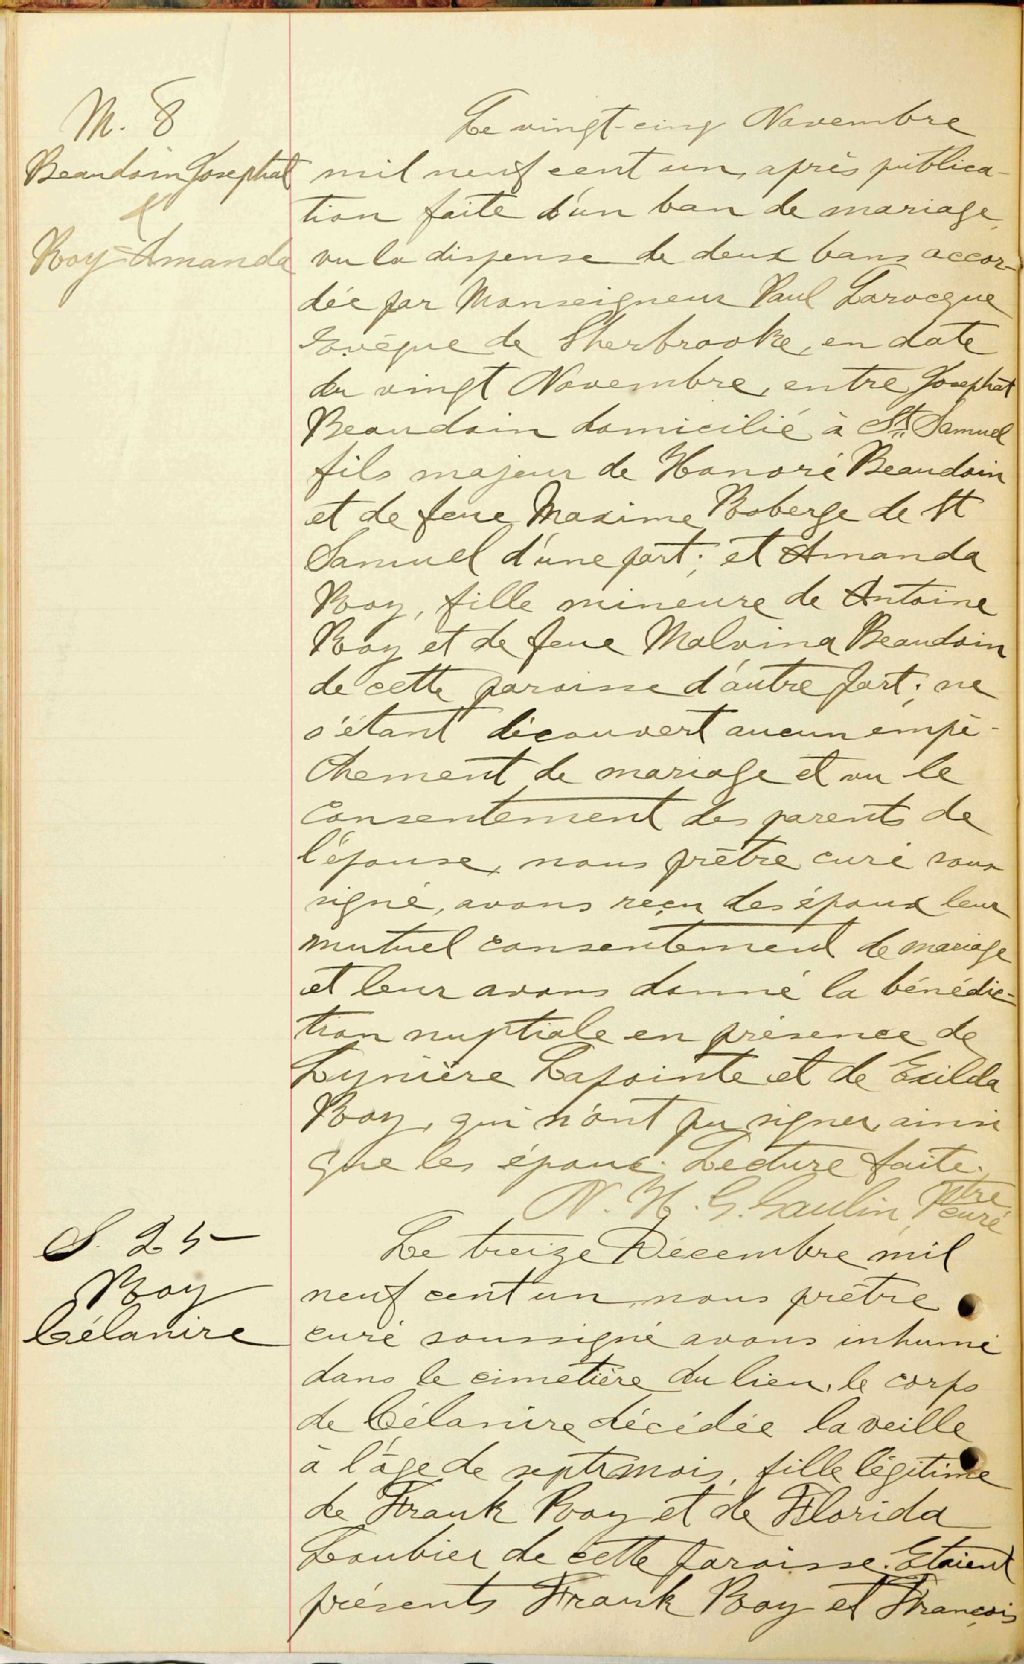 M. 8
Beaudoin Josephat
&
Roy Amanda
Le vingt-cinq Novembre
mil neuf cent un, après publica-
tion faite d'un ban de mariage,
vu la dispense de deux bans accor-
dée par Monseigneur Paul Larocque
Évêque de Sherbrooke, en date
du vingt Novembre, entre Josephat
Beaudoin domicilié à St Samuel
fils majeur de Honoré Beaudoin
et de feue Maxime Roberge de St
Samuel d'une part; et Amanda
Roy, fille mineure de Antoine
Roy et de feue Malvina Beaudoin
de cette paroisse d'autre part; ne
s'étant découvert aucun empê-
chement de mariage et vu le
consentement des parents de
l'épouse, nous prêtre curé sous
signé, avons reçu des époux leur
mutuel consentement de mariage
et leur avons donné la bénédic-
tion nuptiale en présence de
Lynière Lapointe et de Exilda
Roy, qui n'ont pu signer ainsi
que les époux. Lecture faite.
N. H. G. Gaulin, Ptre
curé
S. 25
Roy
Célanire
Le treize Décembre mil
neuf cent un, nous prêtre
curé soussigné avons inhumé
dans le cimetière du lieu, le corps
de Célanire décédée la veille
à l'âge de sept mois, fille légitime
de Frank Roy et de Florida
Loubier de cette paroisse. Etaient
présents Frank Roy et François